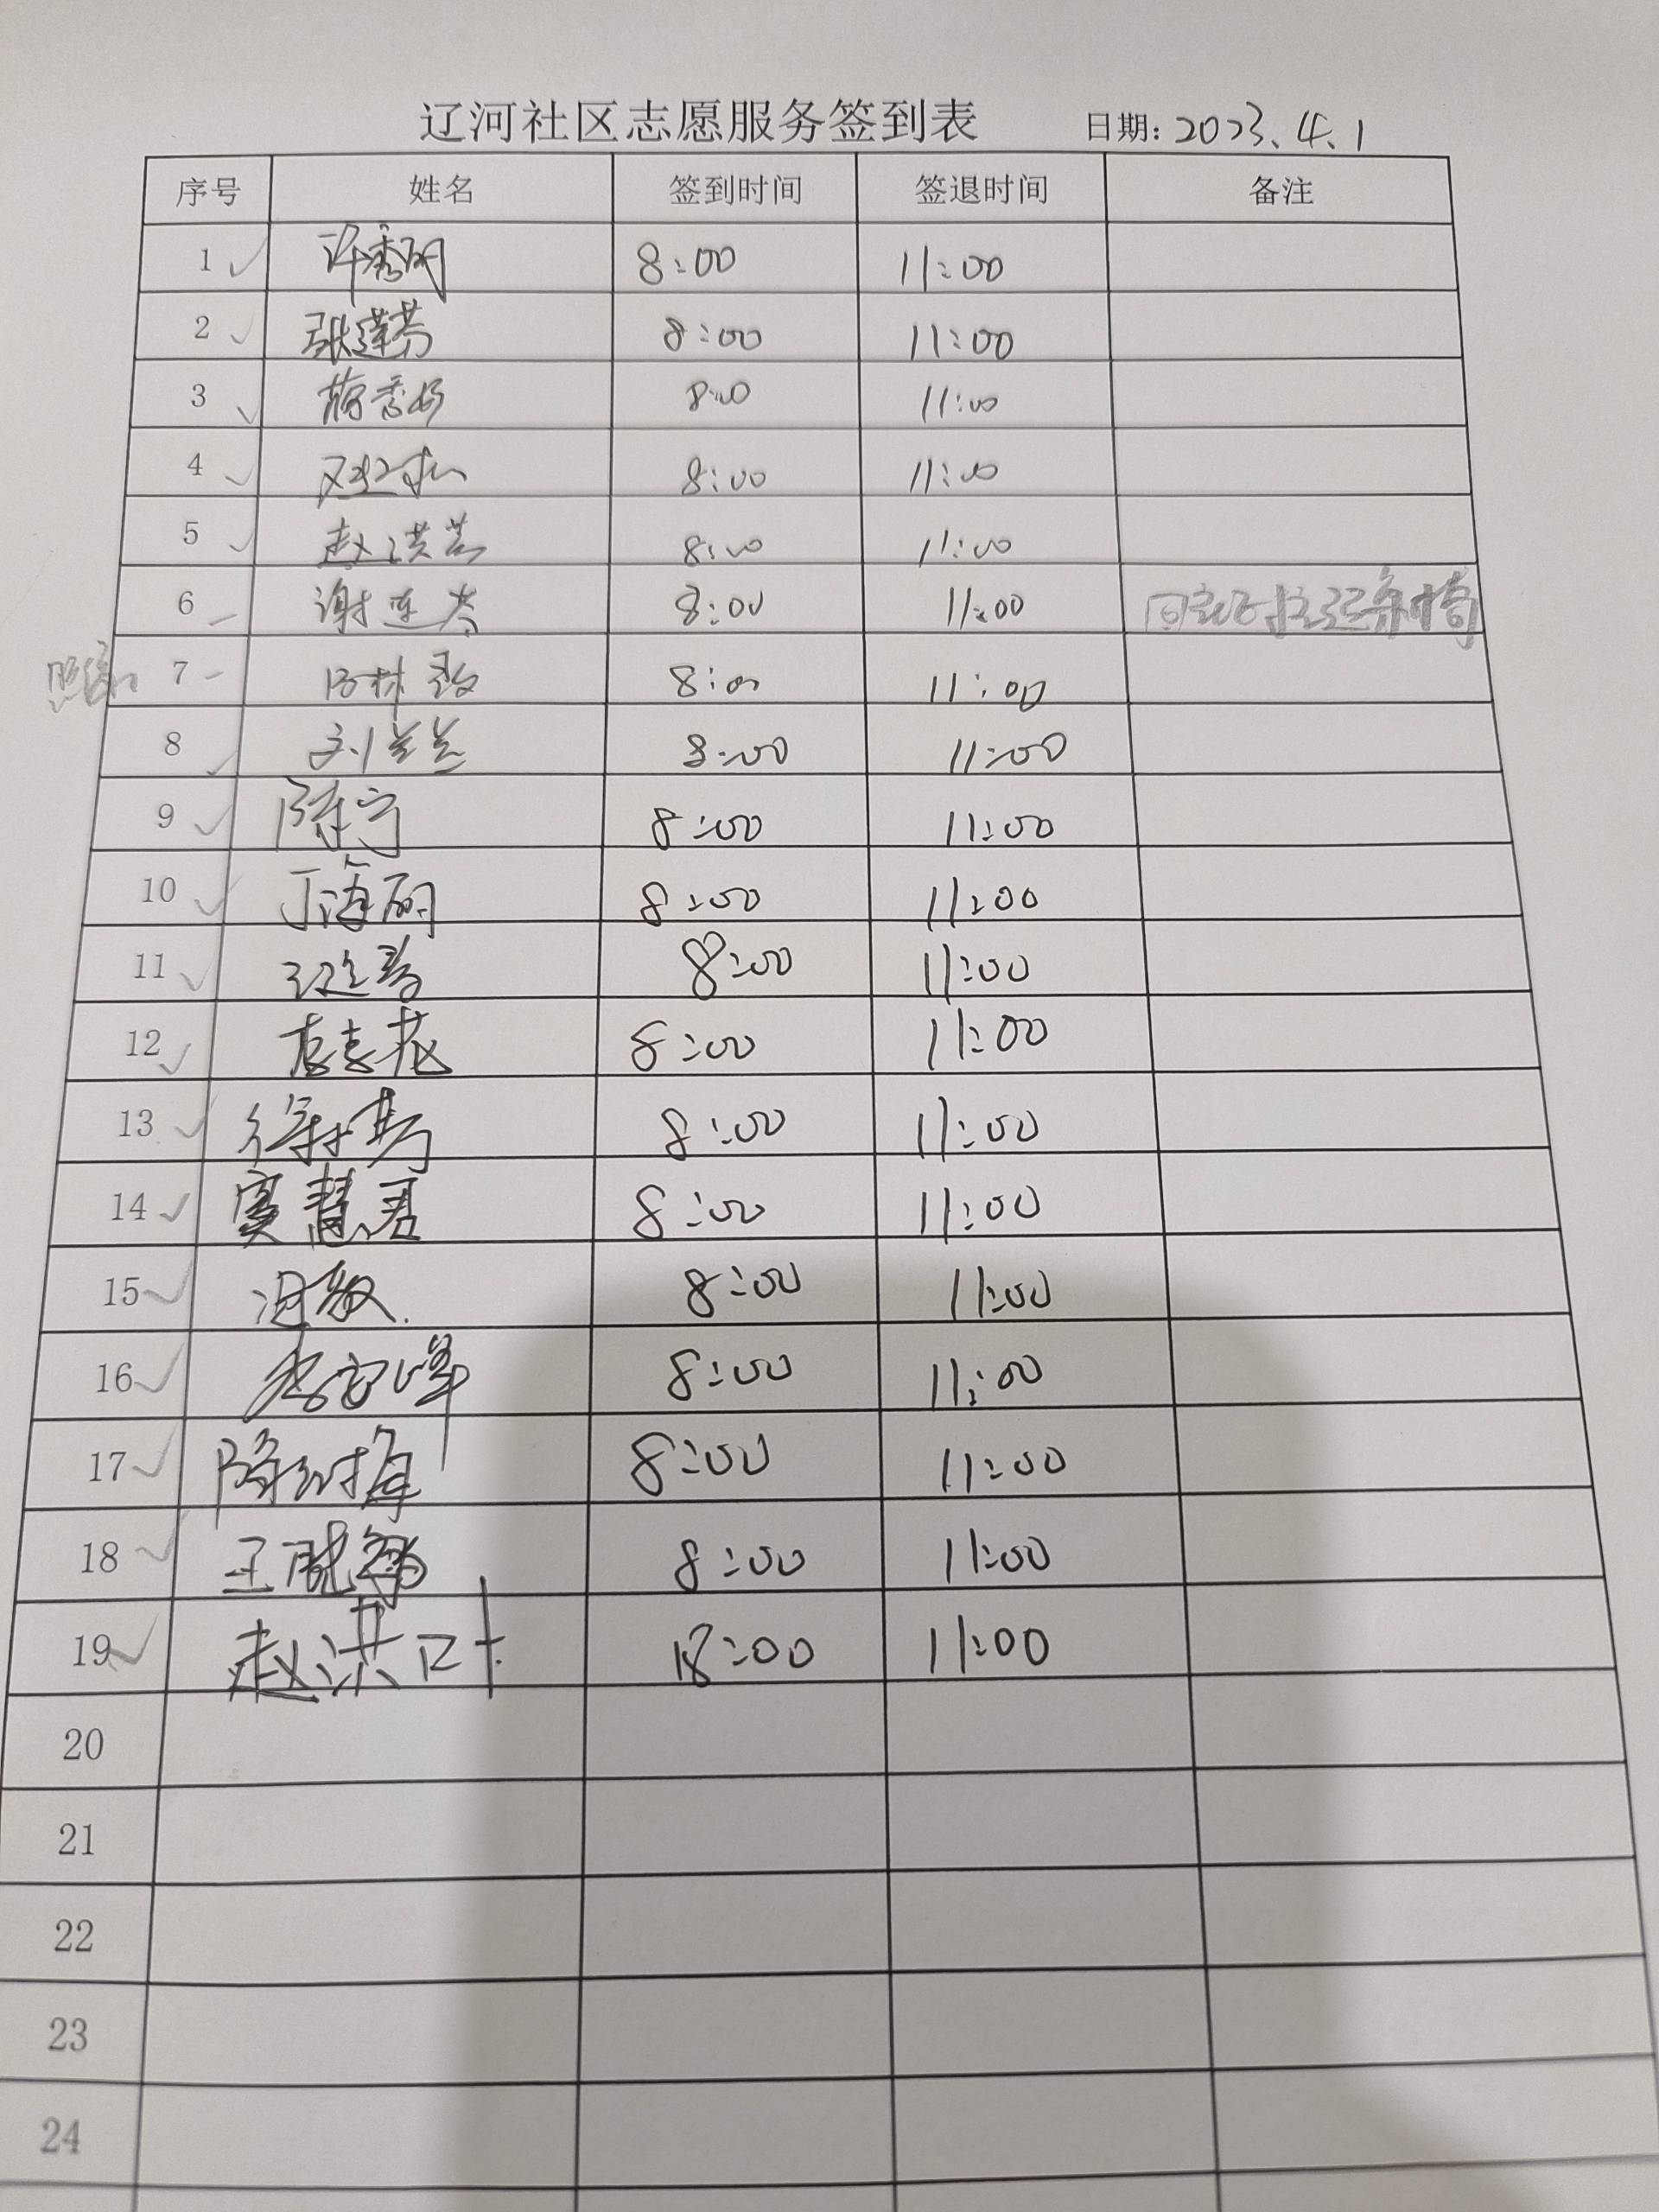 辽河社区志愿服务签到表 日期: 2023.4.1
序号 姓名 签到时间 签退时间 备注
1 许秀丽 8:00 11:00
2 张莲芳 8:00 11:00
3 8:00 11:00
4 8:00 11:00
5 赵洪芸 8:00 11:00
6 谢连芬 8:00 11:00
7 8:00 11:00
8 刘兰兰 8:00 11:00
9 陈宁 8:00 11:00
10 丁海丽 8:00 11:00
11 8:00 11:00
12 8:00 11:00
13 8:00 11:00
14 窦慧君 8:00 11:00
15 8:00 11:00
16 8:00 11:00
17 8:00 11:00
18 8:00 11:00
19 赵洪叶 8:00 11:00
20
21
22
23
24